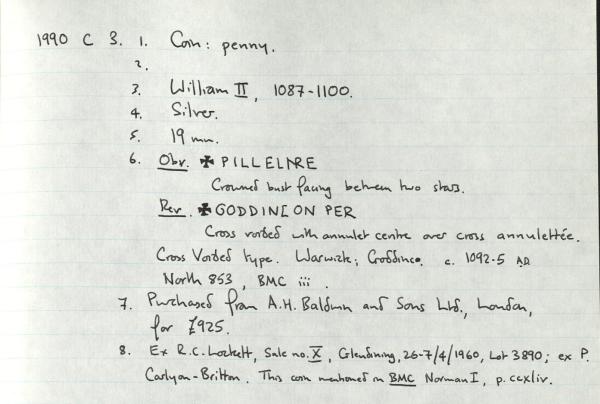 1990 C 3. 1. Coin: penny.
2.
3. William II, 1087-1100.
4. Silver.
5. 19 mm.
6. Obv. ✠ PILLELNRE
Crowned bust facing between two stars.
Rev. ✠ GODDINC ON PER
Cross voided with annulet centre over cross annulettée.
Cross Voided type. Warwick; Goddinc. c. 1092-5 AD
North 853, BMC iii.
7. Purchased from A.H. Baldwin and Sons Ltd., London,
for £925.
8. Ex R.C. Lockett, Sale no. X, Glendining, 26-7/4/1960, Lot 3890; ex P.
Carlyon-Britton. This coin mentioned in BMC Norman I, p. ccxliv.